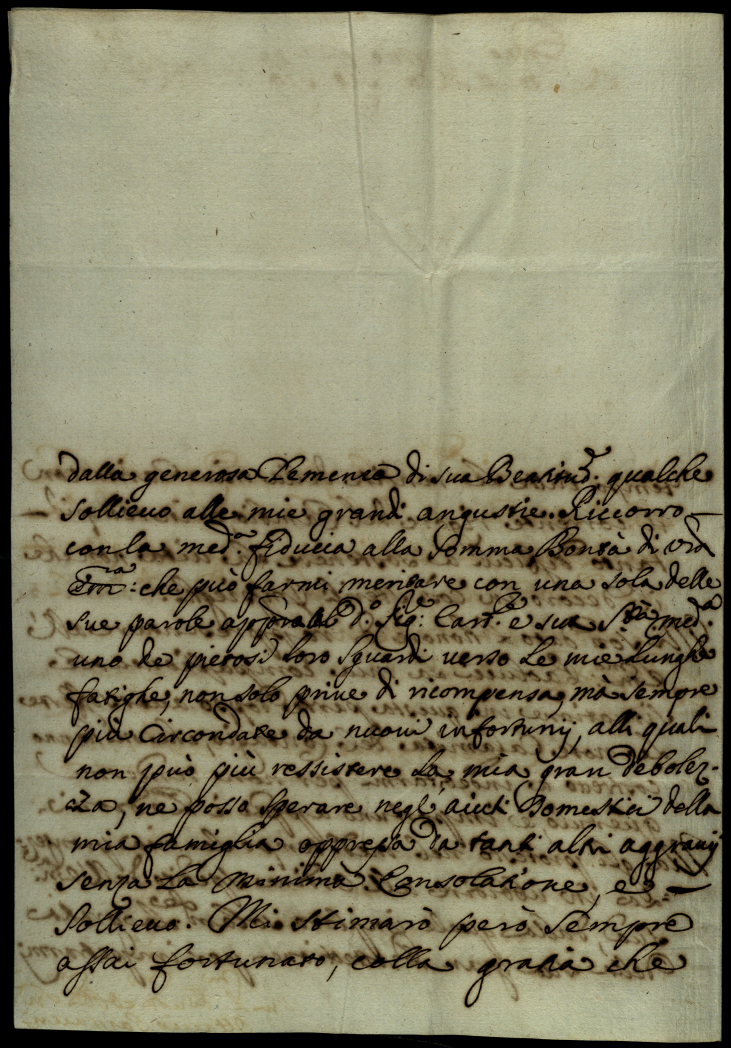 dalla generosa Clemenza di sua Beatitud.e qualche
sollieuo alle mie grandi angustie. Riccorro
con la med.a fiducia alla somma Bontà di vrã
Em.a: che può farmi meritare con una sola delle
sue parole app.o al d.o Sig.e Card.le e sua S.tà med.a
uno de pietosi loro sguardi verso le mie lunghe
fatighe, non solo priue di ricompensa, mà sempre
più circondate da nuoui infortunij, alli quali
non può più ressistere la mia gran debolez-
za, ne posso sperare negl'aiuti Domestici della
mia famiglia oppressa da tanti altri aggrauij
senza la minima Consolatione, e
sollieuo. Mi stimarò però sempre
assai fortunato, colla gratia che